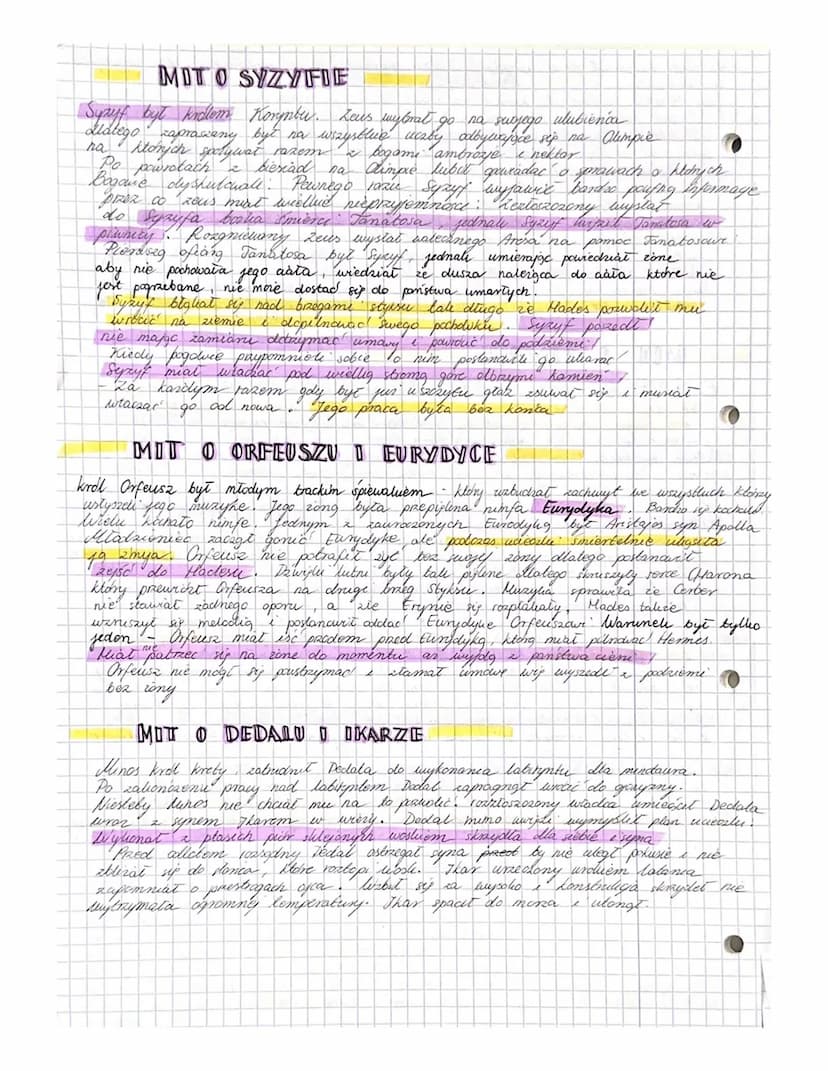 MIT O SYZYFIE
Syzyf był królem Koryntu. Zeus wybrał go na swojego ulubieńca
dlatego zapraszany był na wszystkie uczty odbywające się na Olimpie
na których spożywał razem z bogami ambrozje i nektar
Po powrotach z biesiad na Olimpie lubił opowiadać o sprawach o których
Bogowie dyskutowali. Pewnego razu Syzyf wyjawił bardzo poufną informację
przez co zeus miał wielkie nieprzyjemności. Zezłoszczony wysłał
do Syzyfa bożka śmierci Tanatosa, jednak Syzyf uwięził Tanatosa w
piwnicy. Rozgniewany Zeus wysłał walecznego Aresa na pomoc Tanatosowi
Pierwszą ofiarą Tanatosa był Syzyf, jednak umierając powiedział żonie
aby nie pochowała jego ciała, wiedział że dusza należąca do ciała które nie
jest pogrzebane, nie może dostać się do państwa umarłych.
Syzyf błąkał się nad brzegami styksu tak długo że Hades pozwolił mu
wrócić na ziemie i dopilnować swego pochówku. Syzyf poszedł
nie mając zamiaru dotrzymać umowy i powrócić do podziemi!
Kiedy bogowie przypomnieli sobie o nim postanowili go ukarać
Syzyf miał wtaczać pod wielką stromą górę olbrzymi kamień
- Za każdym razem gdy był już u szczytu głaz zsuwał się i musiał
wtaczać go od nowa. Jego praca była bez końca
MIT O ORFEUSZU I EURYDYCE
król Orfeusz był młodym trackim śpiewakiem - który wzbudzał zachwyt we wszystkich którzy
usłyszeli jego muzykę. Jego żoną była przepiękna nimfa Eurydyka. Bardzo się kochali
Wielu kochało nimfe. Jednym z zauroczonych Eurydyką był Aristajos syn Apolla
Młodzieniec zaczął gonić Eurydykę ale podczas ucieczki śmiertelnie ukąsiła
ją żmija. Orfeusz nie potrafił żyć bez swojej żony dlatego postanowił
zejść do Hadesu. Dźwięki lutni były tak piękne dlatego skruszyły serce Charona
który przewiózł Orfeusza na drugi brzeg Styksu. Muzyka sprawiła że Cerber
nie stawiał żadnego oporu, a złe Erynie się rozpłakały. Hades także
wzruszył się melodią i postanowił oddać Eurydykę Orfeuszowi. Warunek był tylko
jeden - Orfeusz miał iść przodem przed Eurydyką, którą miał pilnować Hermes.
Miał nie patrzeć się na żone do momentu aż wyjdą z państwa cieni!
Orfeusz nie mógł się powstrzymać i złamał umowę więc wyszedł z podziemi
bez żony
MIT O DEDALU I IKARZE
Minos król krety, zatrudnił Dedala do wykonania labiryntu dla minotaura.
Po zakończeniu pracy nad labiryntem Dedal zapragnął wrócić do ojczyzny.
Niestety Minos nie chciał mu na to pozwolić. rozzłoszczony władca umieścił Dedala
wraz z synem Ikarem w wieży. Dedal mimo wieży wymyślił plan ucieczki.
Wykonał z ptasich piór sklejonych woskiem skrzydła dla siebie i syna
Przed odlotem rozsądny Dedal ostrzegał syna przed by nie uległ pokusie i nie
zbliżał się do słońca, które roztopi wosk. Ikar urzeczony urokiem latania
zapomniał o przestrogach ojca. Wzbił się za wysoko i konstrukcja skrzydeł nie
wytrzymała ogromnej temperatury. Ikar spadł do morza i utonął.